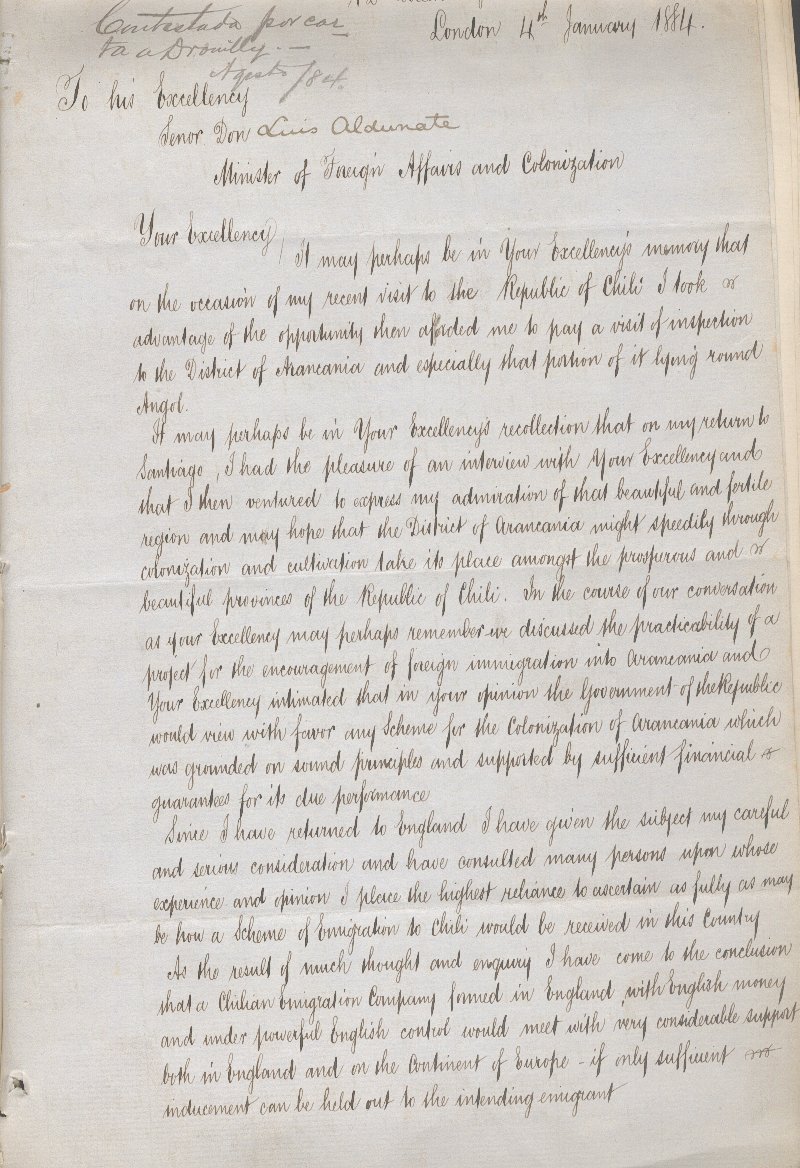 Contestada por car
ta a Drouilly. —
Agosto /84.
London 4th January 1884.
To his Excellency
Senor Don Luis Aldunate
Minister of Foreign Affairs and Colonization
Your Excellency,
It may perhaps be in Your Excellency's memory that
on the occasion of my recent visit to the Republic of Chili I took
advantage of the opportunity then afforded me to pay a visit of inspection
to the District of Arancania and especially that portion of it lying round
Angol.
It may perhaps be in Your Excellency's recollection that on my return to
Santiago, I had the pleasure of an interview with Your Excellency and
that I then ventured to express my admiration of that beautiful and fertile
region and my hope that the District of Arancania might speedily through
colonization and cultivation take its place amongst the prosperous and
beautiful provinces of the Republic of Chili. In the course of our conversation
as your Excellency may perhaps remember we discussed the practicability of a
project for the encouragement of foreign immigration into Arancania and
Your Excellency intimated that in your opinion the Government of the Republic
would view with favor any Scheme for the Colonization of Arancania which
was grounded on sound principles and supported by sufficient financial
guarantees for its due performance
Since I have returned to England I have given the subject my careful
and serious consideration and have consulted many persons upon whose
experience and opinion I place the highest reliance to ascertain as fully as may
be how a Scheme of Emigration to Chili would be received in this Country
As the result of much thought and enquiry I have come to the conclusion
that a Chilian Emigration Company formed in England, with English money
and under powerful English control would meet with very considerable support
both in England and on the Continent of Europe - if only sufficient
inducement can be held out to the intending emigrant